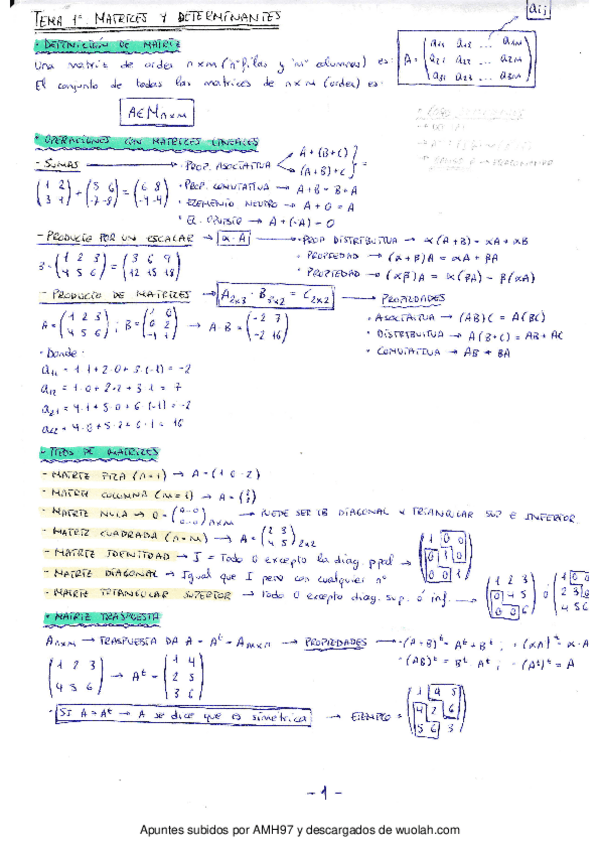 TEMA 1º. MATRICES Y DETERMINANTES
aij
· DEFINICIÓN DE MATRIZ
Una matriz de orden n×m (n filas y "m" columnas) es: A = (a11 a12 ... a1m
a21 a22 ... a2m
a31 a32 ... a3m)
El conjunto de todas las matrices de n×m (orden) es:
A∈Mn×m
· OPERACIONES CON MATRICES LINEALES
- SUMAS → · PROP. ASOCIATIVA A+(B+C) } =
(A+B)+C
(1 2 / 3 1) + (5 6 / -7 -8) = (6 8 / -4 -4)
· PROP. CONMUTATIVA → A+B = B+A
· ELEMENTO NEUTRO → A+0 = A
· EL. OPUESTO → A+(-A) = 0
- PRODUCTO POR UN ESCALAR → α·A → · PROP. DISTRIBUTIVA → α(A+B) = αA + αB
3·(1 2 3 / 4 5 6) = (3 6 9 / 12 15 18)
· PROPIEDAD → (α+β)A = αA + βA
· PROPIEDAD → (αβ)A = α(βA) = β(αA)
- PRODUCTO DE MATRICES → A2×3 · B3×2 = C2×2 → PROPIEDADES
A = (1 2 3 / 4 5 6) ; B = (1 0 / 0 2 / -1 1) → A·B = (-2 7 / -2 16)
· ASOCIATIVA → (AB)C = A(BC)
· DISTRIBUTIVA → A(B+C) = AB + AC
· CONMUTATIVA → AB ≠ BA
· Donde:
a11 = 1·1+2·0+3·(-1) = -2
a12 = 1·0+2·2+3·1 = 7
a21 = 4·1+5·0+6·(-1) = -2
a22 = 4·0+5·2+6·1 = 16
· TIPOS DE MATRICES
- MATRIZ FILA (n=1) → A = (1 6 -2)
- MATRIZ COLUMNA (m=1) → A =
- MATRIZ NULA → 0 = (0-0 / 0-0)n×m → PUEDE SER TB DIAGONAL Y TRIANGULAR SUP E INFERIOR
- MATRIZ CUADRADA (n=m) → A = (2 3 / 4 5)2×2
- MATRIZ IDENTIDAD → I = Todo 0 excepto la diag. ppal → (1 0 0 / 0 1 0 / 0 0 1)
- MATRIZ DIAGONAL → Igual que I pero con cualquier nº
- MATRIZ TRIANGULAR SUPERIOR → Todo 0 excepto diag. sup. ó inf. → (1 2 3 / 0 4 5 / 0 0 6) o (1 0 0 / 2 3 0 / 4 5 6
· MATRIZ TRASPUESTA
An×m → TRASPUESTA DA A = At = Am×n → PROPIEDADES → · (A+B)t = At + Bt ; · (αA)t = α·A
· (AB)t = Bt At ; · (At)t = A
(1 2 3 / 4 5 6) → At = (1 4 / 2 5 / 3 6)
· SI A = At → A se dice que es simétrica → EJEMPLO = (1 4 5 / 4 2 6 / 5 6 3)
- 1 -
Apuntes subidos por AMH97 y descargados de wuolah.com